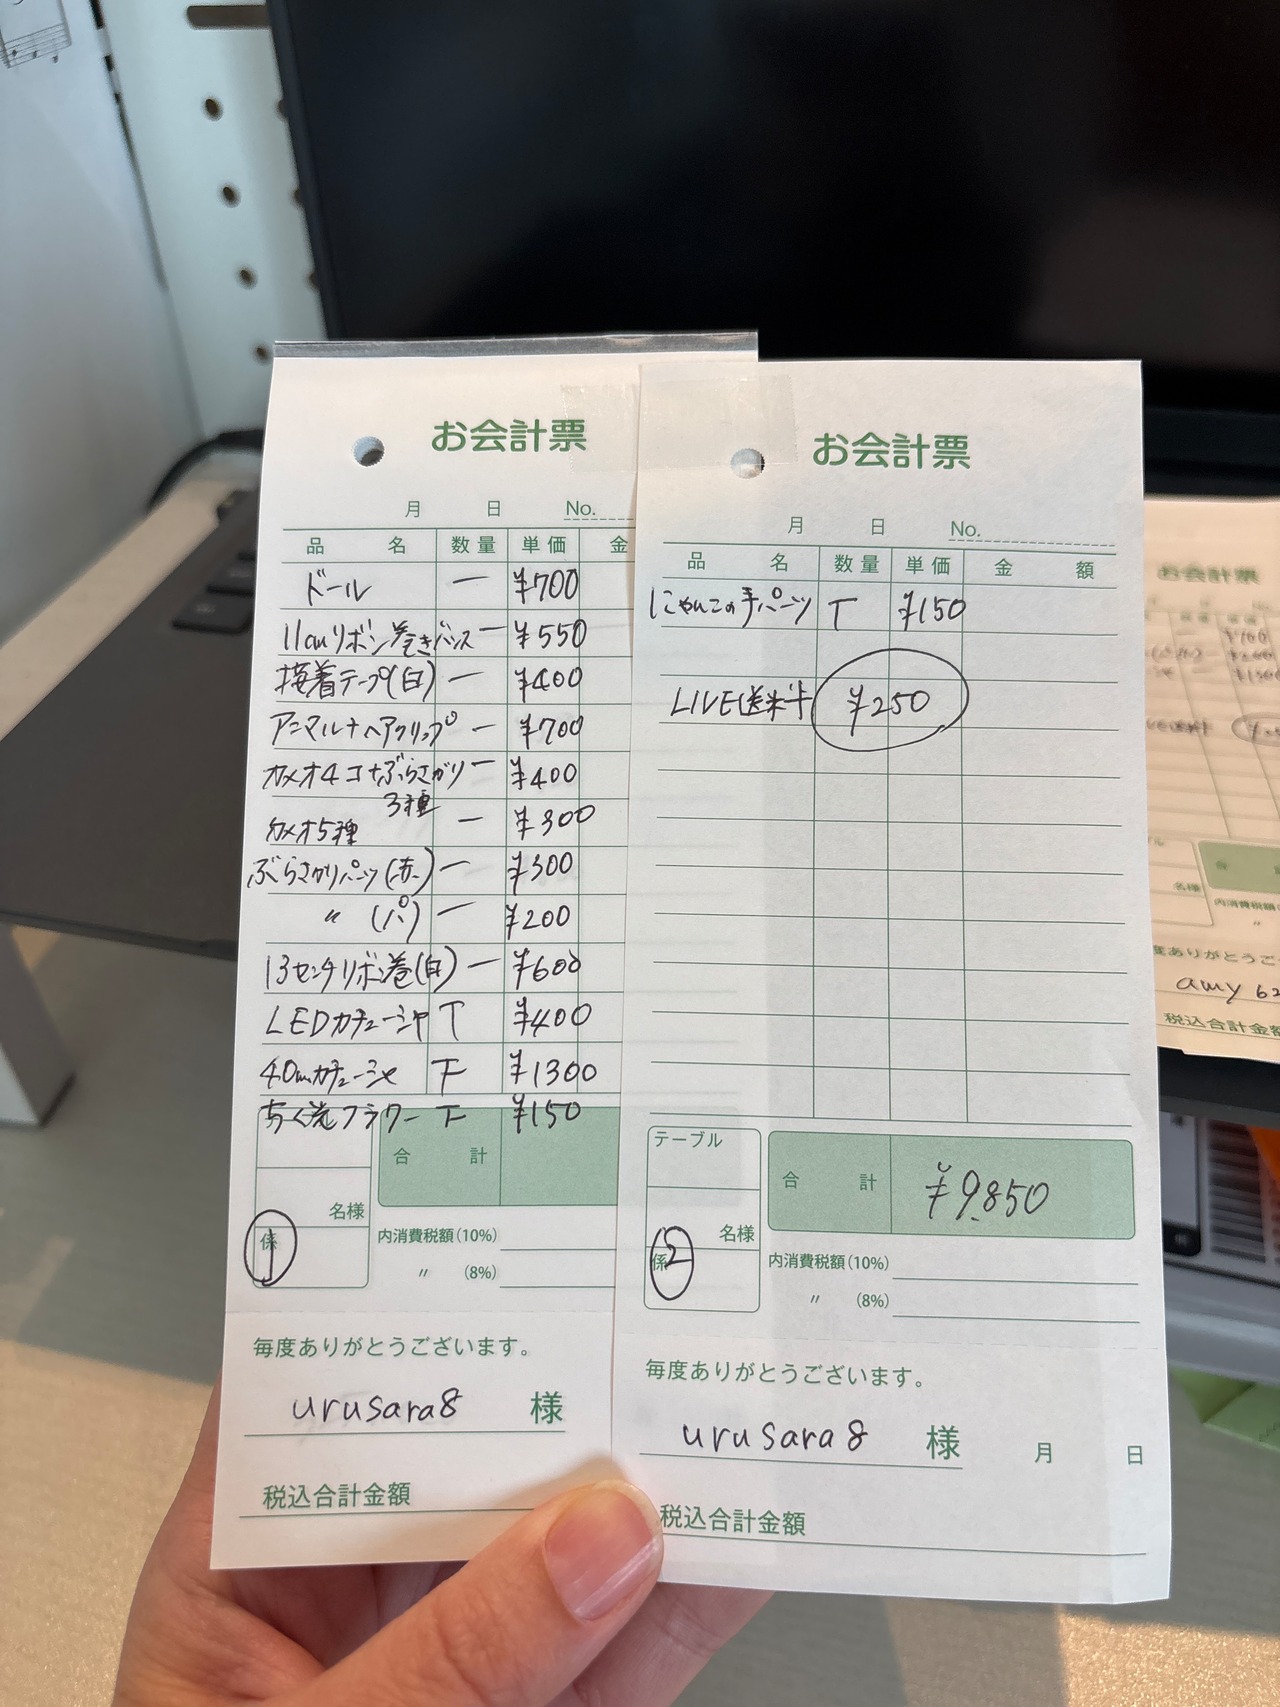 お会計票
月 日 No.
品 名 数量 単価 金
ドール 一 ¥700
11cmリボン巻きバンス 一 ¥550
接着テープ(白) 一 ¥400
アニマル+ヘアクリップ 一 ¥700
カメオ4コ+ぶらさがり 一 ¥400
3種
カメオ5種 一 ¥300
ぶらさがりパーツ(赤) 一 ¥300
〃 (パ) 一 ¥200
13センチリボン巻(白) 一 ¥600
LEDカチューシャ T ¥400
40mmカチューシャ 下 ¥1300
ちく光フラワー 下 ¥150
合 計
名様
係
1
内消費税額(10%)
〃 (8%)
毎度ありがとうございます。
urusara8 様
税込合計金額
お会計票
月 日 No.
品 名 数量 単価 金 額
にゃんこの手パーツ T ¥150
LIVE送料 ¥250
テーブル
合 計 ¥9,850
名様
係
2
内消費税額(10%)
〃 (8%)
毎度ありがとうございます。
urusara8 様 月 日
税込合計金額
お会計票
名様
内消費税額
amy
税込合計金額